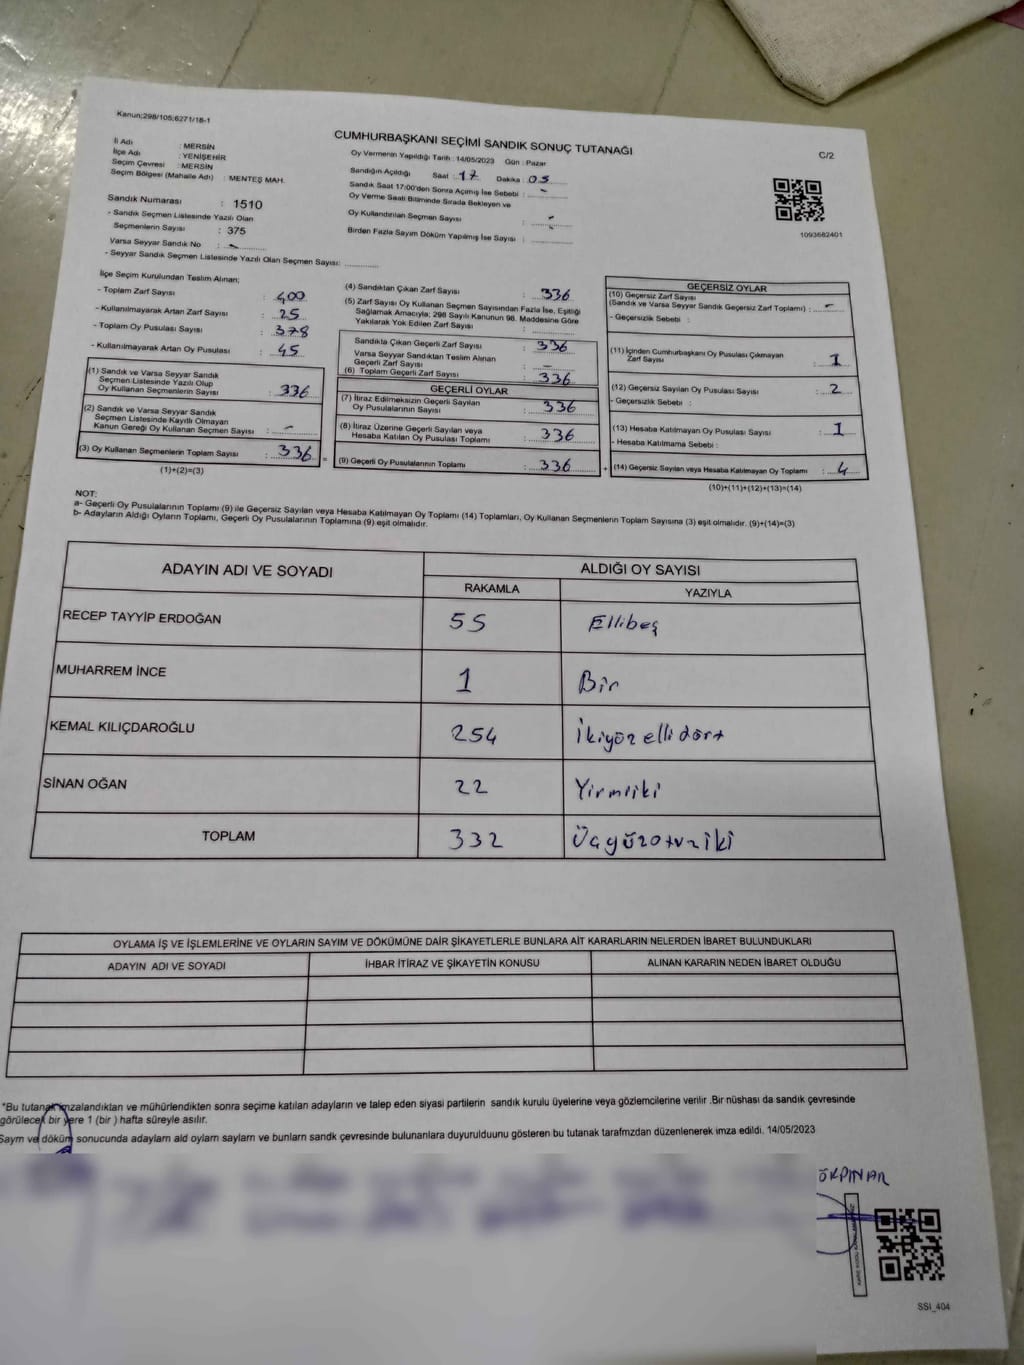 Kanun;298/105;6271/18-1
CUMHURBAŞKANI SEÇİMİ SANDIK SONUÇ TUTANAĞI
C/2
İl Adı : MERSİN
İlçe Adı : YENİŞEHİR
Seçim Çevresi : MERSİN
Seçim Bölgesi (Mahalle Adı) : MENTEŞ MAH.
Sandık Numarası : 1510
- Sandık Seçmen Listesinde Yazılı Olan
Seçmenlerin Sayısı : 375
Varsa Seyyar Sandık No : -
- Seyyar Sandık Seçmen Listesinde Yazılı Olan Seçmen Sayısı:
Oy Vermenin Yapıldığı Tarih : 14/05/2023 Gün : Pazar
Sandığın Açıldığı Saat : 17 Dakika : 05
Sandık Saat 17:00'den Sonra Açımış İse Sebebi : -
Oy Verme Saati Bitiminde Sırada Bekleyen ve
Oy Kullandırılan Seçmen Sayısı : -
Birden Fazla Sayım Döküm Yapılmış İse Sayısı : -
1093682401
İlçe Seçim Kurulundan Teslim Alınan;
- Toplam Zarf Sayısı : 400
- Kullanılmayarak Artan Zarf Sayısı : 25
- Toplam Oy Pusulası Sayısı : 378
- Kullanılmayarak Artan Oy Pusulası : 45
(1) Sandık ve Varsa Seyyar Sandık
Seçmen Listesinde Yazılı Olup
Oy Kullanan Seçmenlerin Sayısı : 336
(2) Sandık ve Varsa Seyyar Sandık
Seçmen Listesinde Kayıtlı Olmayan
Kanun Gereği Oy Kullanan Seçmen Sayısı : -
(3) Oy Kullanan Seçmenlerin Toplam Sayısı : 336 =
(1)+(2)=(3)
(4) Sandıktan Çıkan Zarf Sayısı : 336
(5) Zarf Sayısı Oy Kullanan Seçmen Sayısından Fazla İse, Eşitliği
Sağlamak Amacıyla; 298 Sayılı Kanunun 98. Maddesine Göre
Yakılarak Yok Edilen Zarf Sayısı :
Sandıkta Çıkan Geçerli Zarf Sayısı : 336
Varsa Seyyar Sandıktan Teslim Alınan
Geçerli Zarf Sayısı : -
(6) Toplam Geçerli Zarf Sayısı : 336
GEÇERLİ OYLAR
(7) İtiraz Edilmeksizin Geçerli Sayılan
Oy Pusulalarının Sayısı : 336
(8) İtiraz Üzerine Geçerli Sayılan veya
Hesaba Katılan Oy Pusulası Toplamı : 336
(9) Geçerli Oy Pusulalarının Toplamı : 336 +
GEÇERSİZ OYLAR
(10) Geçersiz Zarf Sayısı
(Sandık ve Varsa Seyyar Sandık Geçersiz Zarf Toplamı) : -
- Geçersizlik Sebebi :
(11) İçinden Cumhurbaşkanı Oy Pusulası Çıkmayan
Zarf Sayısı : 1
(12) Geçersiz Sayılan Oy Pusulası Sayısı : 2
- Geçersizlik Sebebi :
(13) Hesaba Katılmayan Oy Pusulası Sayısı : 1
- Hesaba Katılmama Sebebi :
(14) Geçersiz Sayılan veya Hesaba Katılmayan Oy Toplamı : 4
(10)+(11)+(12)+(13)=(14)
NOT:
a- Geçerli Oy Pusulalarının Toplamı (9) ile Geçersiz Sayılan veya Hesaba Katılmayan Oy Toplamı (14) Toplamları, Oy Kullanan Seçmenlerin Toplam Sayısına (3) eşit olmalıdır. (9)+(14)=(3)
b- Adayların Aldığı Oyların Toplamı, Geçerli Oy Pusulalarının Toplamına (9) eşit olmalıdır.
ADAYIN ADI VE SOYADI ALDIĞI OY SAYISI
RAKAMLA YAZIYLA
RECEP TAYYİP ERDOĞAN 55 Ellibeş
MUHARREM İNCE 1 Bir
KEMAL KILIÇDAROĞLU 254 İkiyüzellidört
SİNAN OĞAN 22 Yirmiiki
TOPLAM 332 Üçyüzotuziki
OYLAMA İŞ VE İŞLEMLERİNE VE OYLARIN SAYIM VE DÖKÜMÜNE DAİR ŞİKAYETLERLE BUNLARA AİT KARARLARIN NELERDEN İBARET BULUNDUKLARI
ADAYIN ADI VE SOYADI İHBAR İTİRAZ VE ŞİKAYETİN KONUSU ALINAN KARARIN NEDEN İBARET OLDUĞU
"Bu tutanak imzalandıktan ve mühürlendikten sonra seçime katılan adayların ve talep eden siyasi partilerin sandık kurulu üyelerine veya gözlemcilerine verilir .Bir nüshası da sandık çevresinde
görülecek bir yere 1 (bir ) hafta süreyle asılır.
Saym ve döküm sonucunda adaylarn ald oylarn saylarn ve bunlarn sandk çevresinde bulunanlara duyurulduunu gösteren bu tutanak tarafmzdan düzenlenerek imza edildi. 14/05/2023
ÖKPINAR
SSI_404